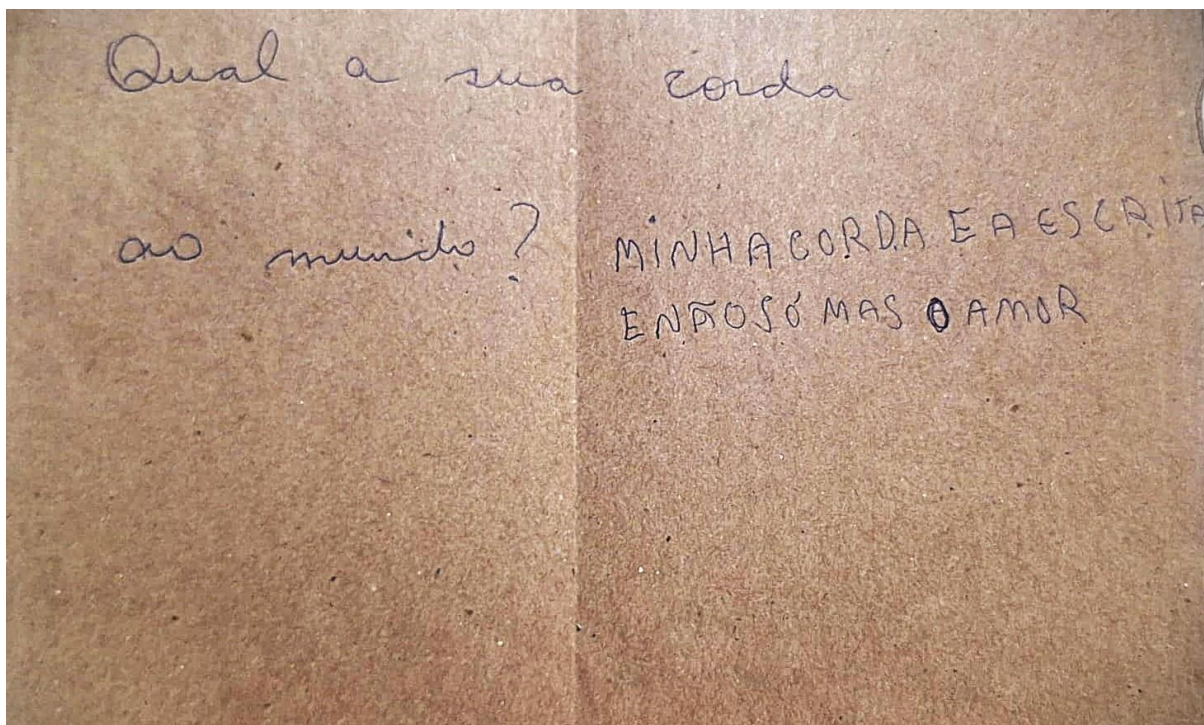 Qual a sua corda
ao mundo?
MINHA CORDA E A ESCRITA
E NÃO SÓ MAS O AMOR